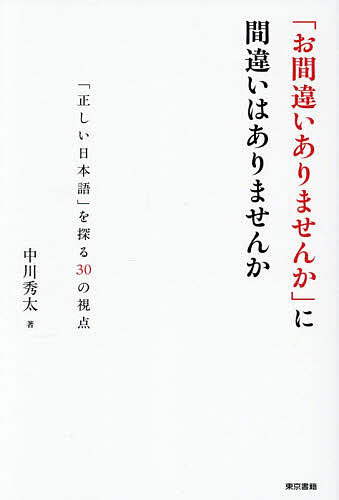 「お間違いありませんか」に
間違いはありませんか
「正しい日本語」を探る30の視点
中川秀太 著
東京書籍